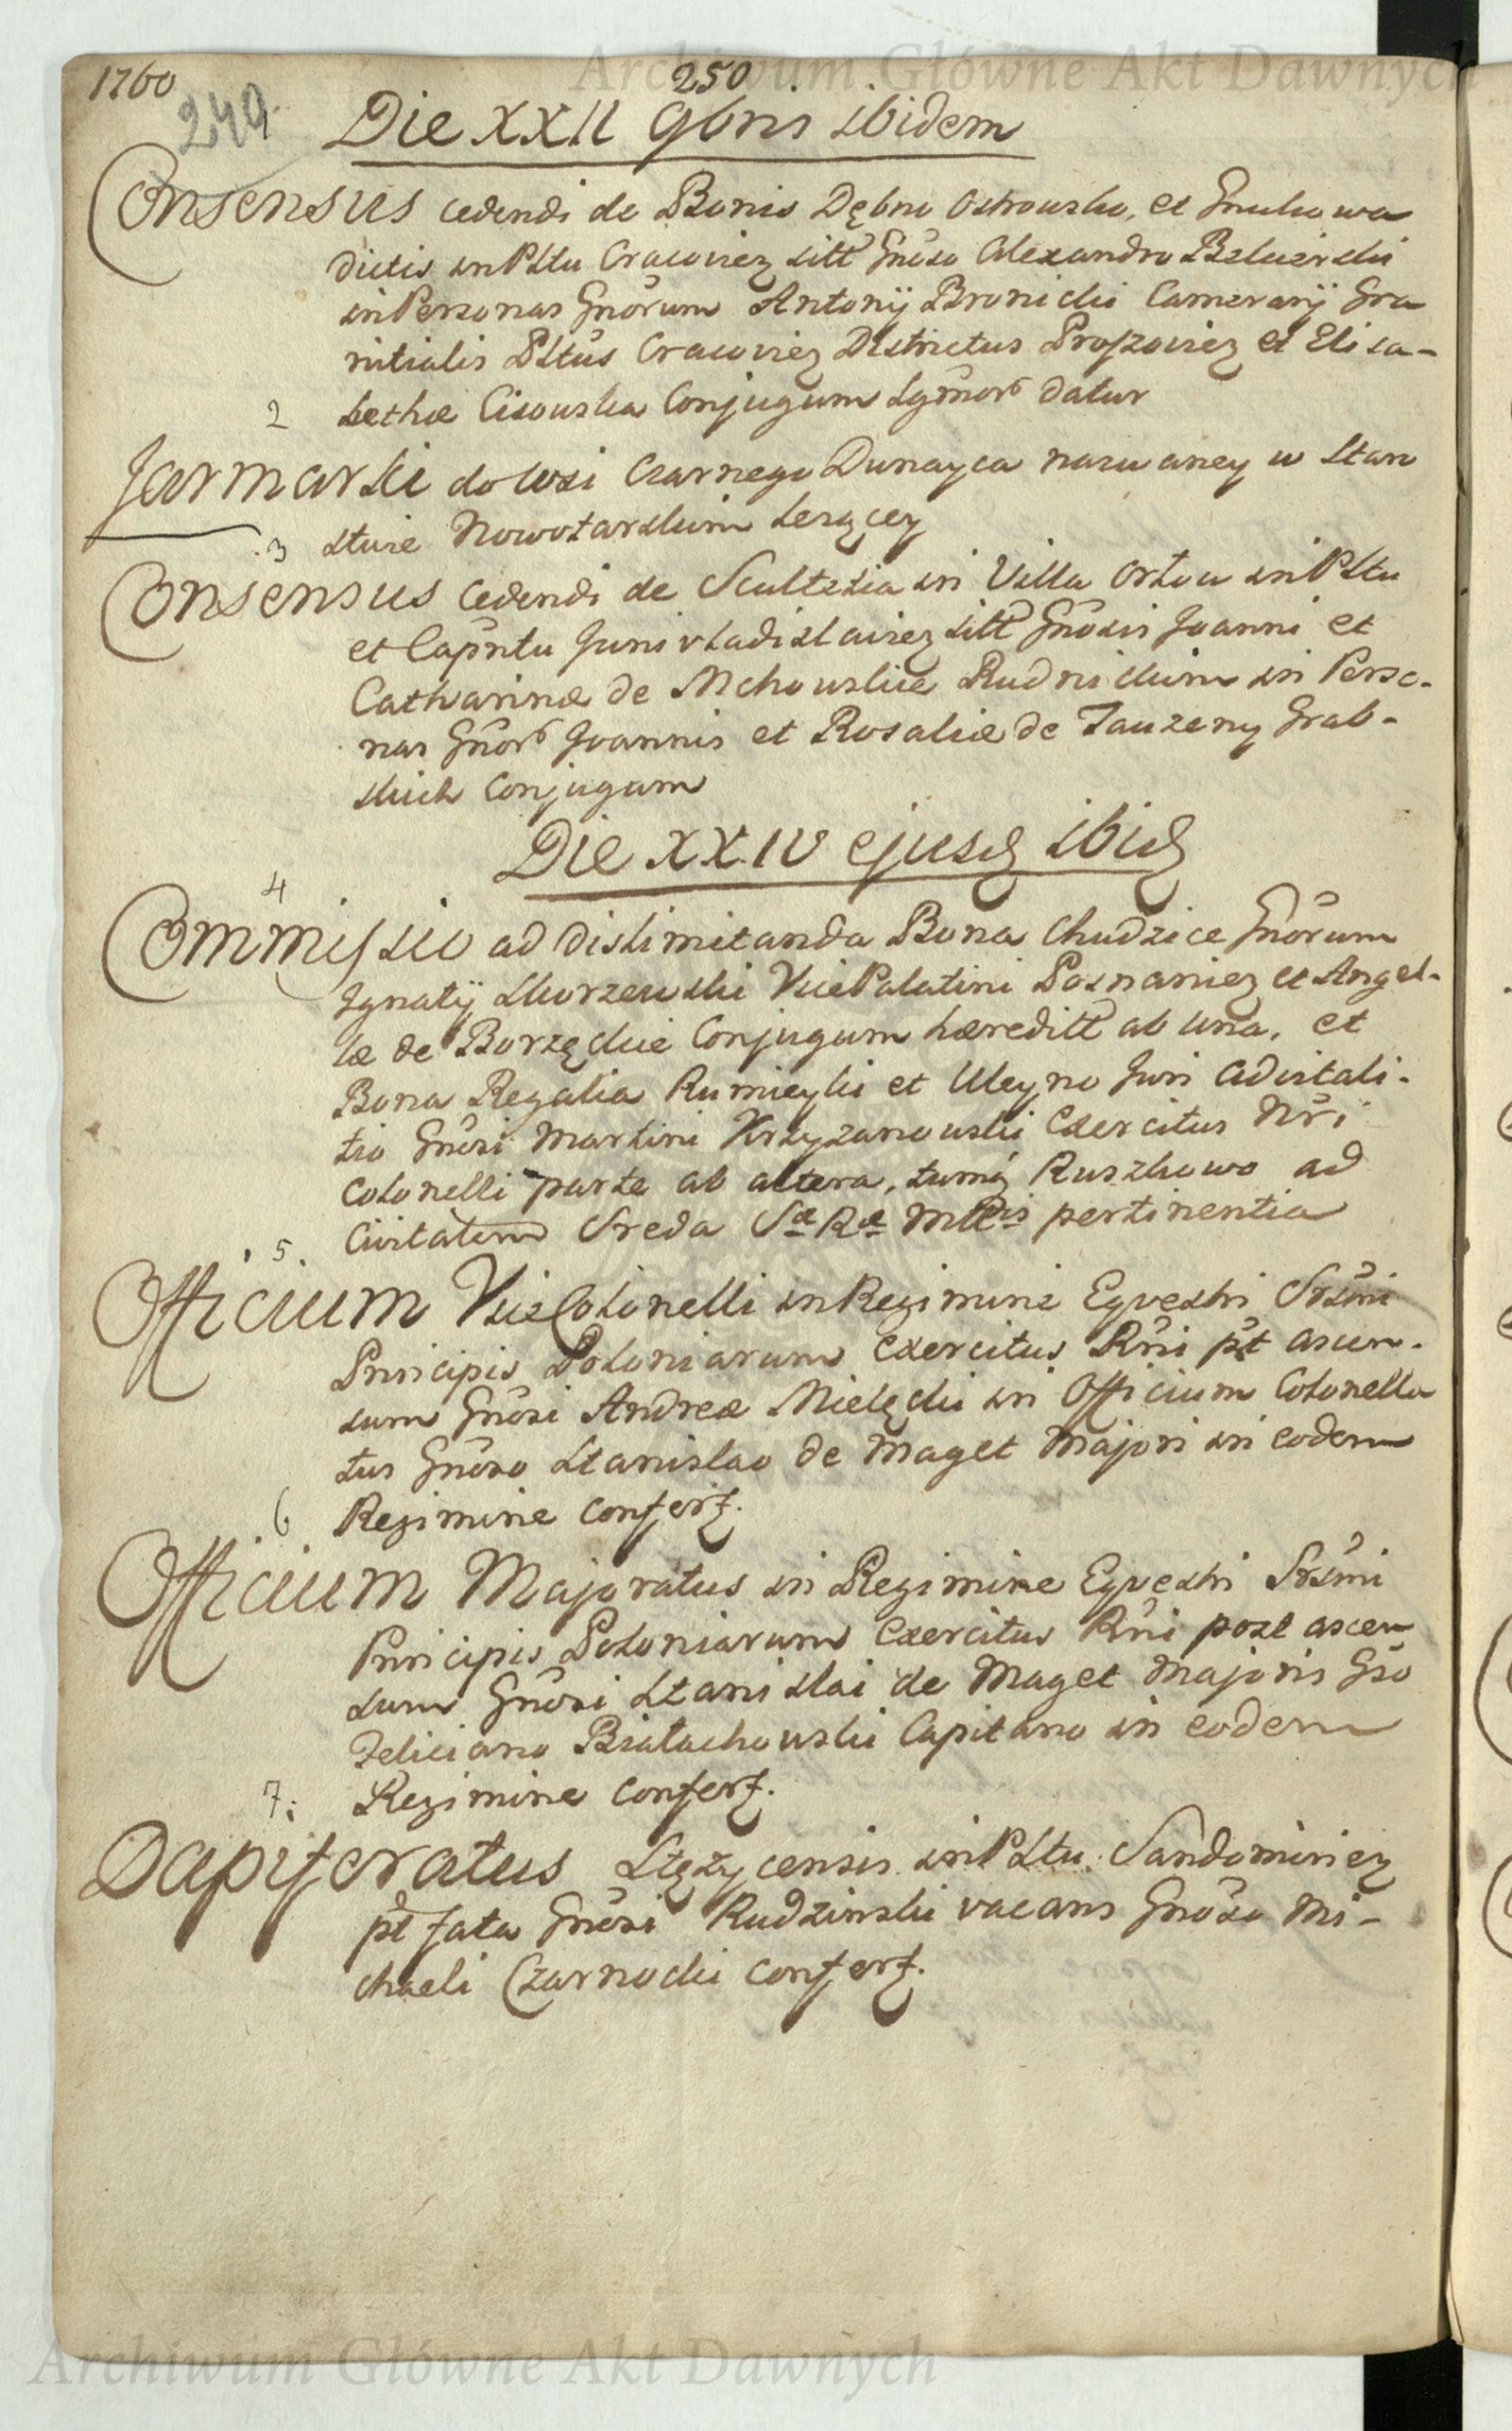 Archiwum Główne Akt Dawnych
1760
250
249
Die XXII 9bris ibidem
Consensus cedendi de Bonis Dębno Ostrowsko, et
dictis in Pltu Cracovien sitt Gnoso Alexandro
in Personas Gnorum Antonij Bronicki Camerarij Gra
nitialis Pltus Cracovien Districtus Proszovien et Elisa-
2 bethæ Cisowska Conjugum datur
Jarmarki do Wsi Czarnego Dunayca nazwaney w Star
stwie Nowotarskim lezącey
3
Consensus cedendi de Scultetia in Villa Orłow in Pltu
et Capntu Junivladislavien sitt Gnosis Joanni et
Catharinæ de Mchowskie Rudnickim in Perso-
nas Gnor Joannis et Rosaliæ de Grab-
skich Conjugum
Die XXIV ejusd ibid
4
Commissio ad dislimitanda Bona Chudzice Gnorum
Ignatij Skorzewski Vice Palatini Posnanien et Angel-
læ de Borzęckie Conjugum hæreditt ab una, et
Bona Regalia Rumieyki et Uleyno Juri advitali-
tio Gnosi Martini Krzyzanowski Exercitus Nri
Colonelli parte ab altera, tumq Ruszkowo ad
Civitatem Sreda Sæ Ræ Mttis pertinentia
5.
Officium Vice Colonelli in Regimine Eqvestri Srsmi
Principis Poloniarum Exercitus Rni pt ascen-
sum Gnosi Andreæ Mielęcki in Officium Colonella
tus Gnoso Stanislao de Maget Majori in eodem
6 Regimine confert.
Officium Majoratus in Regimine Eqvestri Srsmi
Principis Poloniarum Exercitus Rni post ascen
sum Gnosi Stanislai de Maget Majoris Gso
Feliciano Białachowski Capitano in eodem
7. Regimine confert.
Dapiferatus Stężycensis in Pltu Sandomirien
pt fata Gnosi Rudzinski vacans Gnoso Mi-
chaeli Czarnocki confert.
Archiwum Główne Akt Dawnych